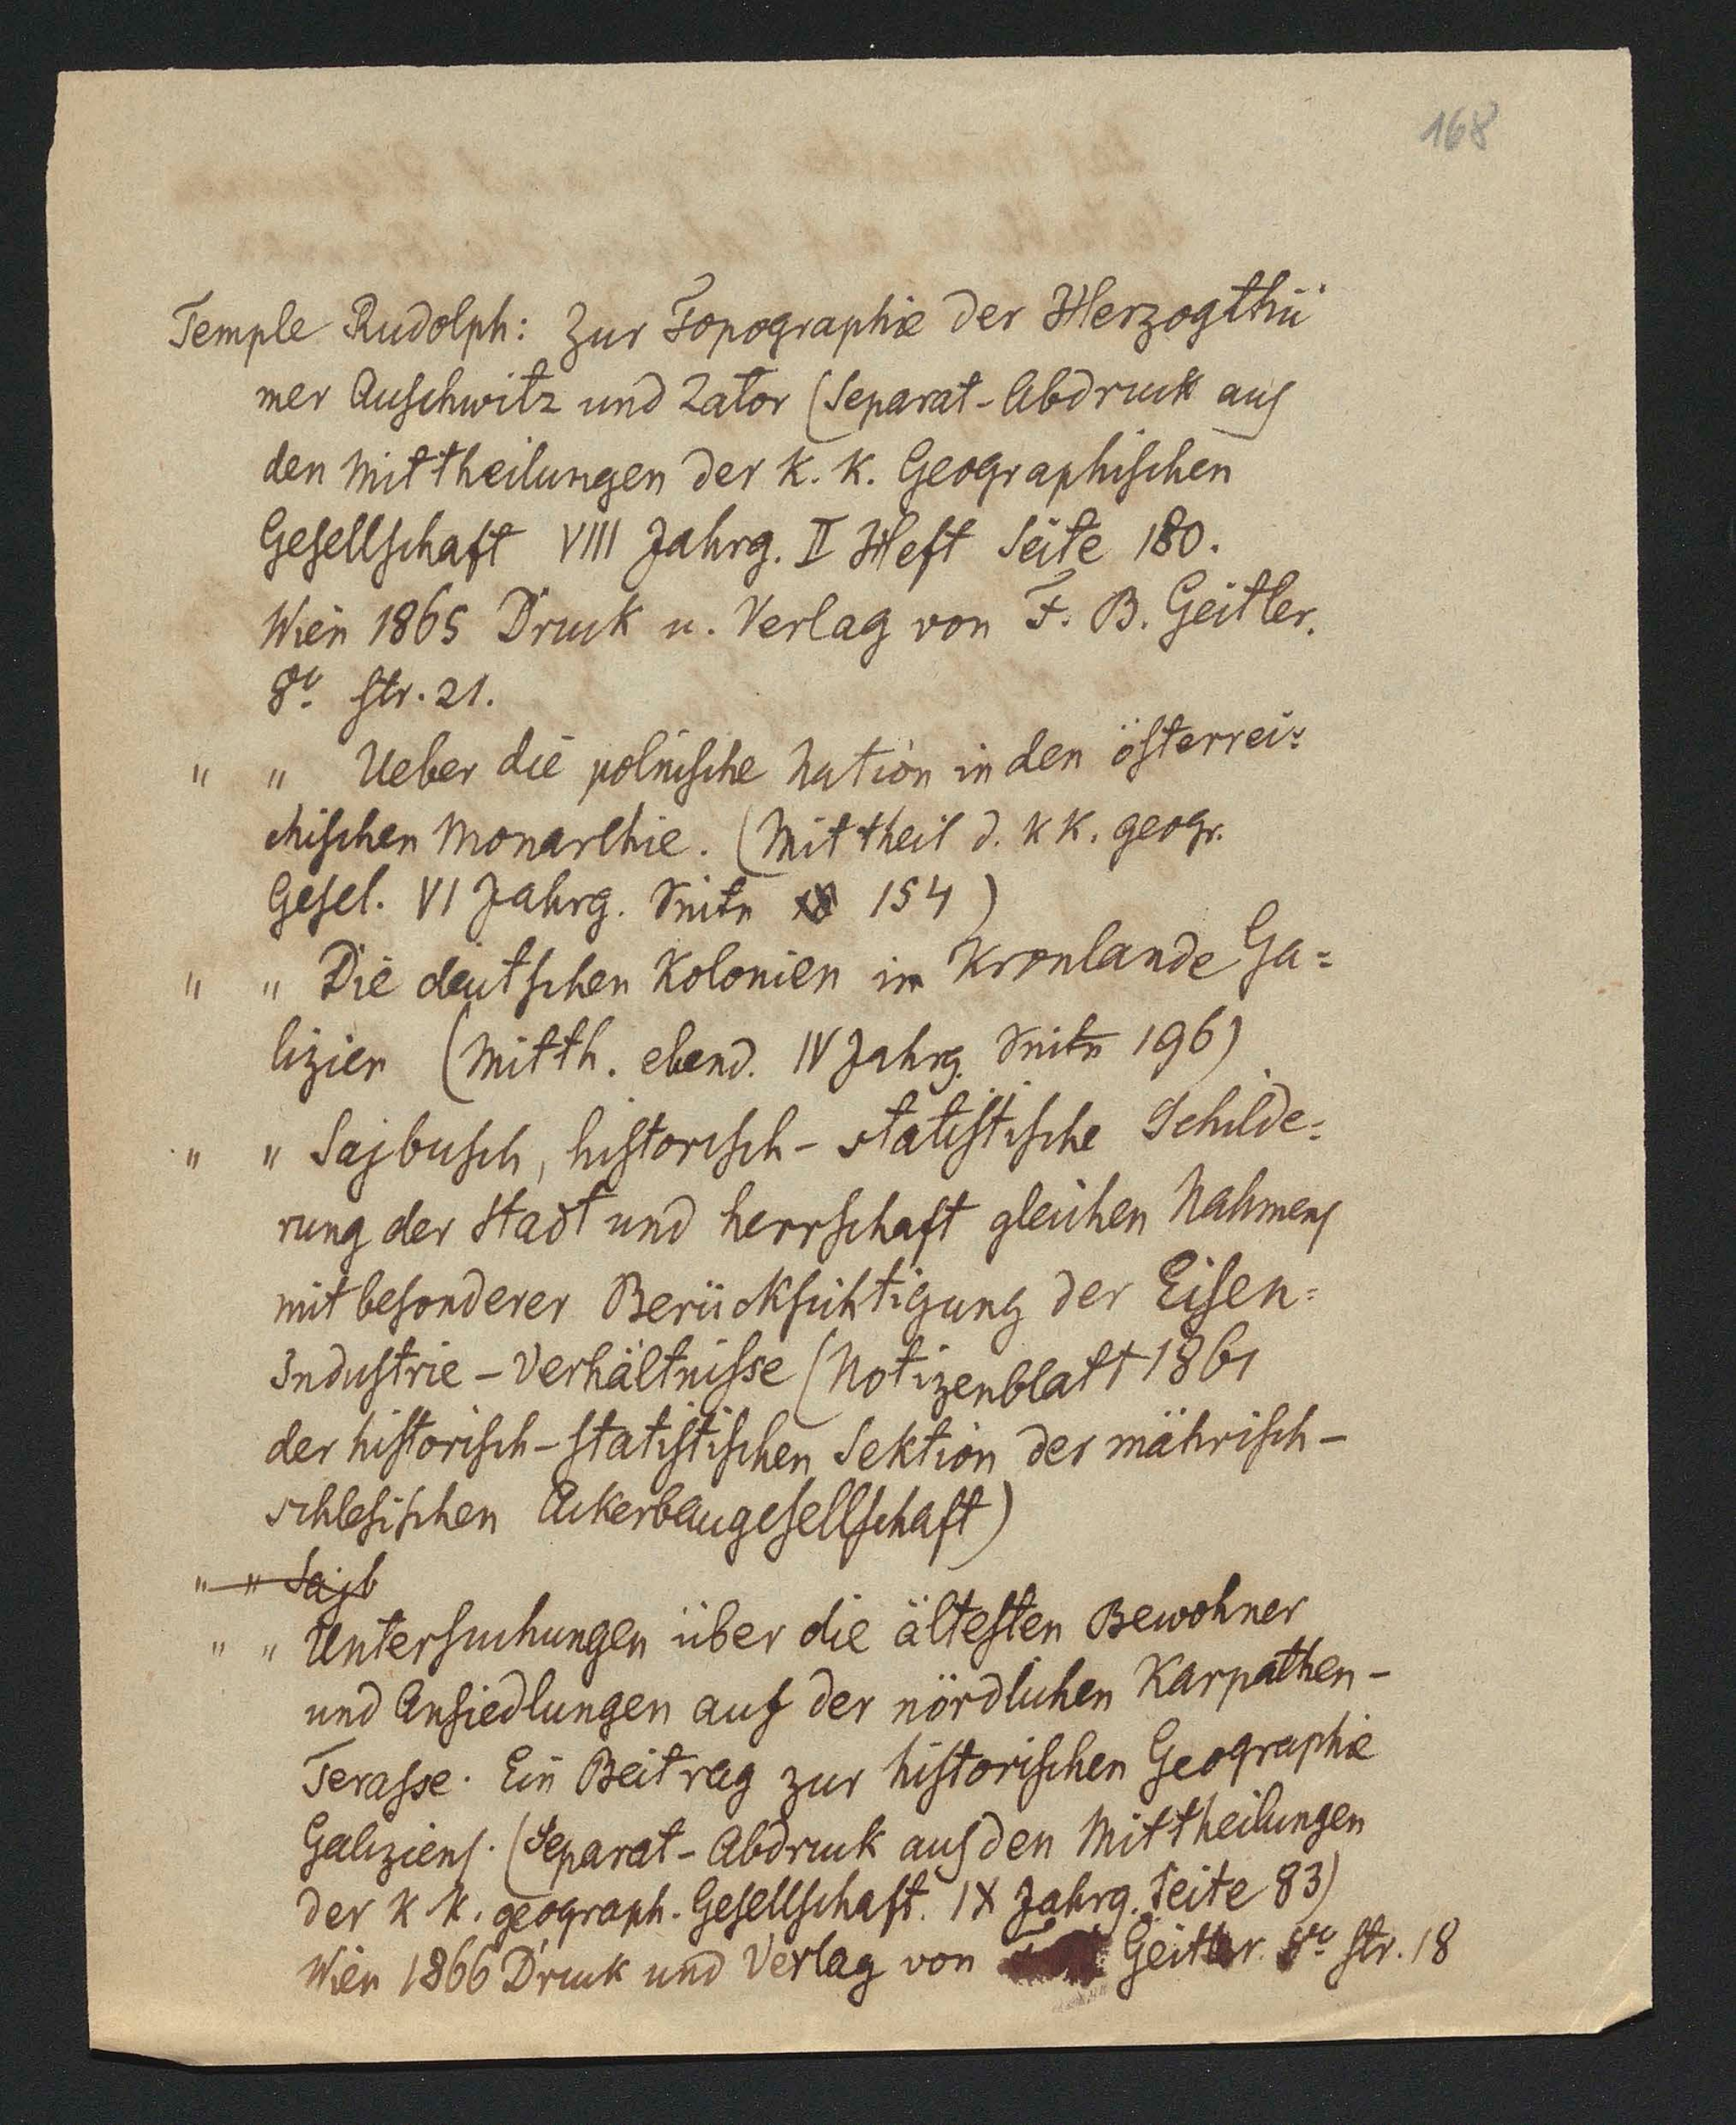 168
Temple Rudolph: Zur Topographie der Herzogthü
mer Auschwitz und Zator (Separat-Abdruck aus
den Mittheilungen der K. K. Geographischen
Gesellschaft VIII Jahrg. II Heft Seite 180.
Wien 1865 Druck u. Verlag von F. B. Geitler.
8º str. 21.
" " Ueber die polnische Nation in den österrei=
chischen Monarchie. (Mittheil d. K K. geogr.
Gesel. VI Jahrg. Seite 154)
" " Die deutschen Kolonien im Kronlande Ga=
lizien (Mitth. ebend. IV Jahrg. Seite 196)
" " Sajbusch, historisch-statistische Schilde=
rung der Stadt und Herrschaft gleichen Nahmens
mit besonderer Berücksichtigung der Eisen=
Industrie-Verhältnisse (Notizenblatt 1861
der historisch-statistischen Sektion der mährisch-
schlesischen Ackerbaugesellschaft)
" " Sajb
" " Untersuchungen über die ältesten Bewohner
und Ansiedlungen auf der nördlichen Karpathen-
Terasse. Ein Beitrag zur historischen Geographie
Galiziens. (Separat-Abdruck aus den Mittheilungen
der K K. geograph. Gesellschaft. IX Jahrg. Seite 83)
Wien 1866 Druck und Verlag von Geitler. 8º str. 18